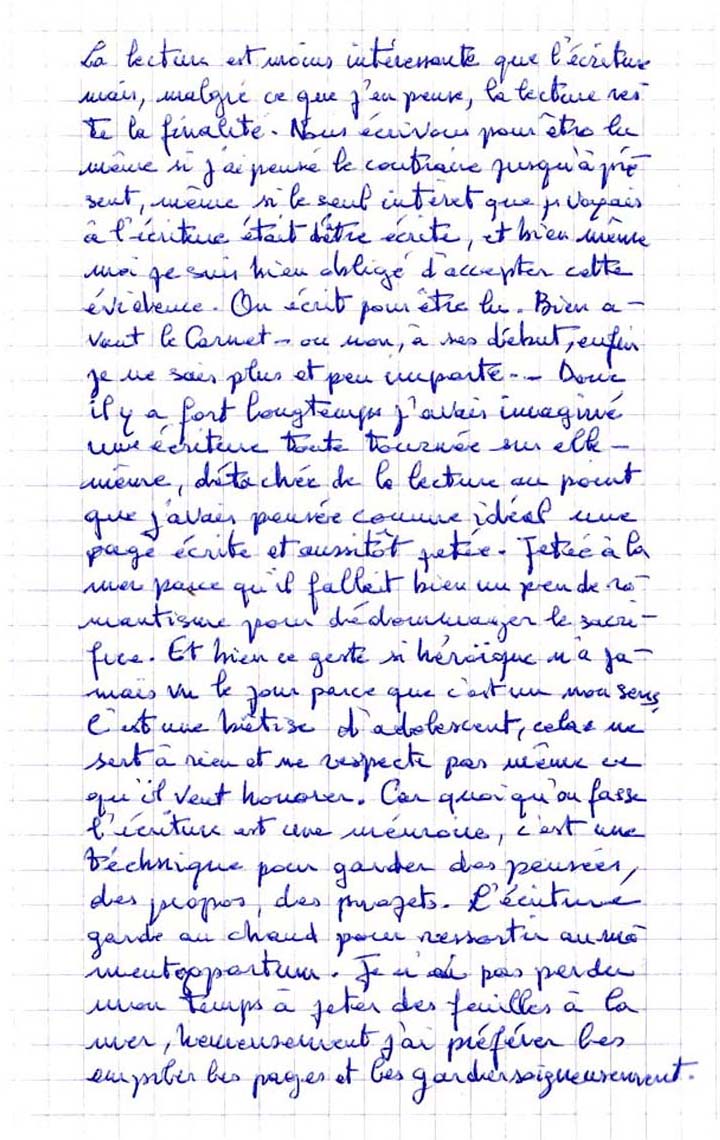 La lecture est moins intéressante que l'écriture
mais, malgré ce que j'en pense, la lecture res
te la finalité. Nous écrivons pour être lu
même si j'ai pensé le contraire jusqu'à pré
sent, même si le seul intérêt que je voyais
à l'écriture était d'être écrite, et bien même
moi je suis bien obligé d'accepter cette
évidence. On écrit pour être lu. Bien a-
vant le Carnet - ou non, à ses début, enfin
je ne sais plus et peu importe -- Donc
il y a fort longtemps j'avais imaginé
une écriture toute tournée sur elle-
même, détachée de la lecture au point
que j'avais pensée comme idéal une
page écrite et aussitôt jetée. Jetée à la
mer parce qu'il fallait bien un peu de ro-
mantisme pour dédommager le sacri-
fice. Et bien ce geste si héroïque n'a ja-
mais vu le jour parce que c'est un non sens,
C'est une bêtise d'adolescent, cela ne
sert à rien et ne respecte pas même ce
qu'il veut honorer. Car quoiqu'on fasse
l'écriture est une mémoire, c'est une
téchnique pour garder des pensées,
des propos, des projets. L'écriture
garde au chaud pour ressortir au mo
ment opportun. Je n'ai pas perdu
mon temps à jeter des feuilles à la
mer, heureusement j'ai préférer les
empiler les pages et les garder soigneusement.